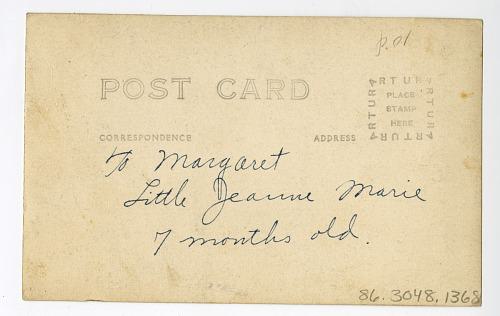 p.01
POST CARD
ARTURA
PLACE
STAMP
HERE
ARTURA
ARTURA
ARTURA
CORRESPONDENCE
ADDRESS
to Margaret
Little Jeanne Marie
7 months old.
86.3048.1368